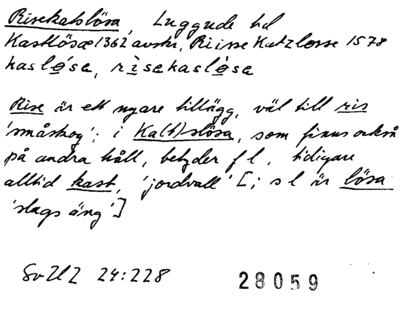 Risekatslösa Luggude hd
Kastlösæ 1362 avskr, Riisse Katzlosse 1578
kaslǿsa, rìsekaslǿsa
Rise är ett nyare tillägg, väl till ris
'småskog'; i Ka(t)slösa, som finns också
på andra håll, betyder f l, tidigare
alltid kast, 'jordvall' [; s l är lösa
'slags äng']
SvUZ 24:228 28059